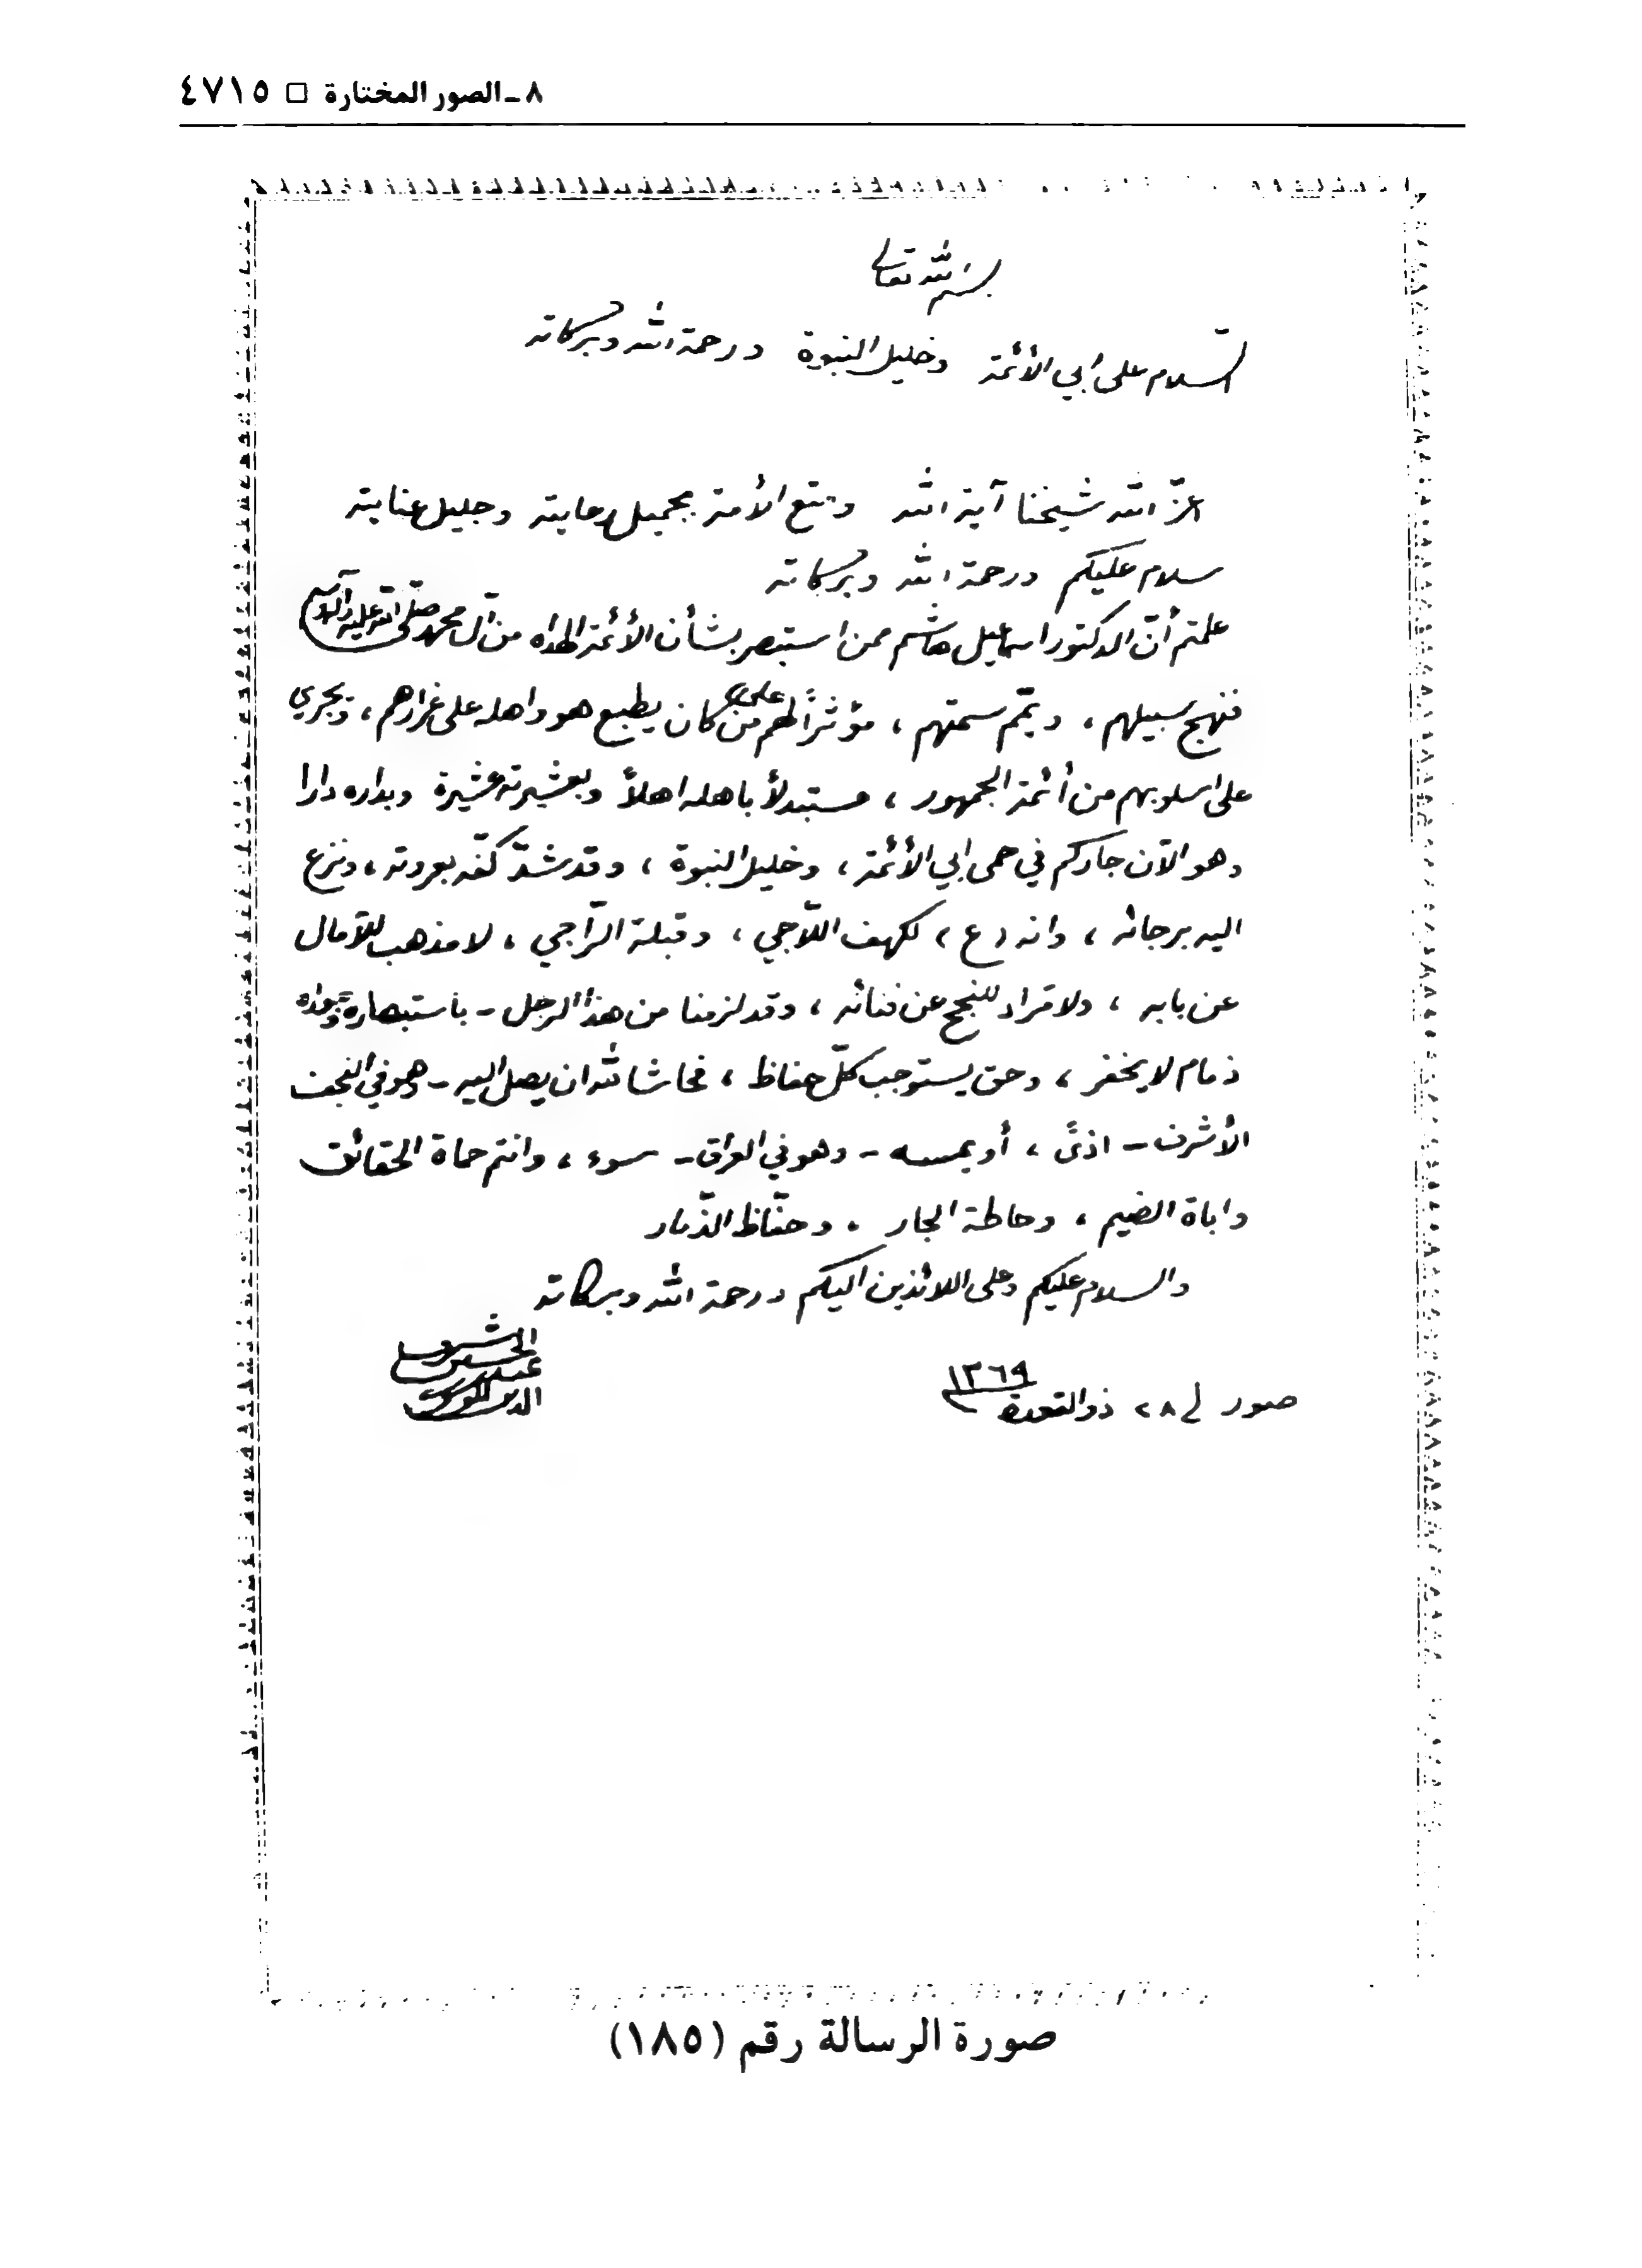 ٨ ـ الصور المختارة □ ٤٧١٥
بسم الله تعالى
السلام على أبي الأئمة وخليل النبوة ورحمة الله وبركاته
اعزّ الله شيخنا آية الله ومتع الأمة بجميل رعايته وجليل عنايته
سلام عليكم ورحمة الله وبركاته
علمتم أنّ الدكتور اسماعيل هاشم ممن استبصر بشأن الأئمة الهداه من آل محمد صلى الله عليه وآله وسلم
فنهج سبيلهم ، ويمّم سمتهم ، مؤثراً لهم على من كان يطبع هو واهله على غرارهم ، ويجري
على اسلوبهم من أئمة الجمهور ، مستبدلاً باهله اهلاً وبعشيرته عشيرة وبداره دارا
وهو الآن جاركم في حمى ابي الأئمة ، وخليل النبوة ، وقد شدّ كفّه بعروته ، ونزع
اليه برجائه ، وانه (ع) لكهف اللّاجي ، وقبلة الرّاجي ، لا مذهب للآمال
عن بابه ، ولا مراد للنجح عن فنائه ، وقد لزمنا من هذا الرجل - باستبصاره وجواره
ذمام لا يخفر ، وحق يستوجب كلّ حفاظ ، فحاشا لله ان يصل اليه - وهو في النجف
الأشرف - اذىً ، أو يمسه - وهو في العراق - سوء ، وانتم حماة الحقائق
واباة الضيم ، وحاطة الجار ، وحفّاظ الذّمار
والسلام عليكم وعلى اللائذين اليكم ورحمة الله وبركاته
صور في ٢٨ ذو القعدة ١٣٦٩
عبد الحسين شرف الدين الموسوي
صورة الرسالة رقم (١٨٥)